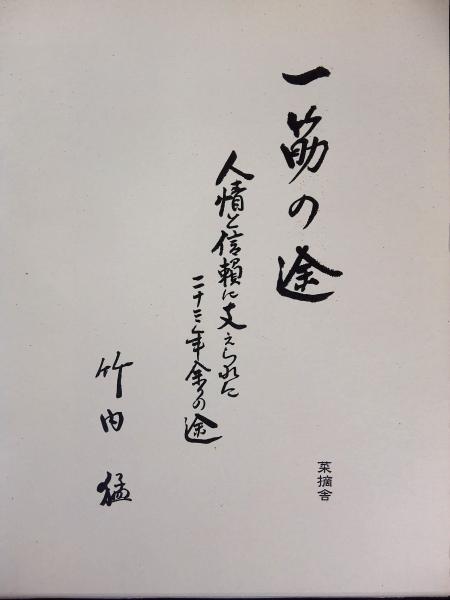 一筋の途
人情と信頼に支えられた
二十三年余りの途
竹内 猛
菜摘舎